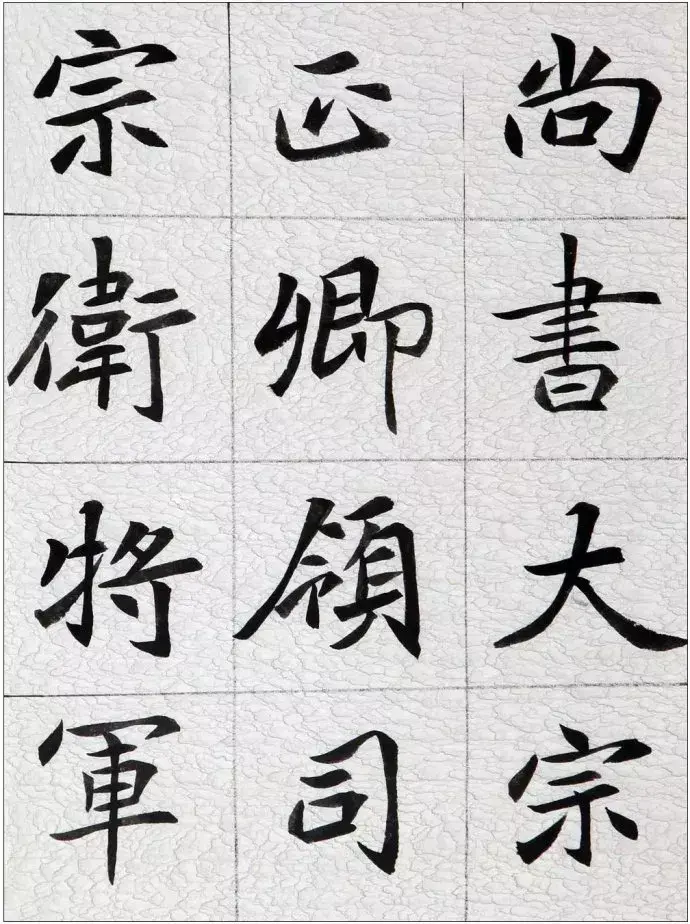 尚書大宗
正卿領司
宗衛將軍